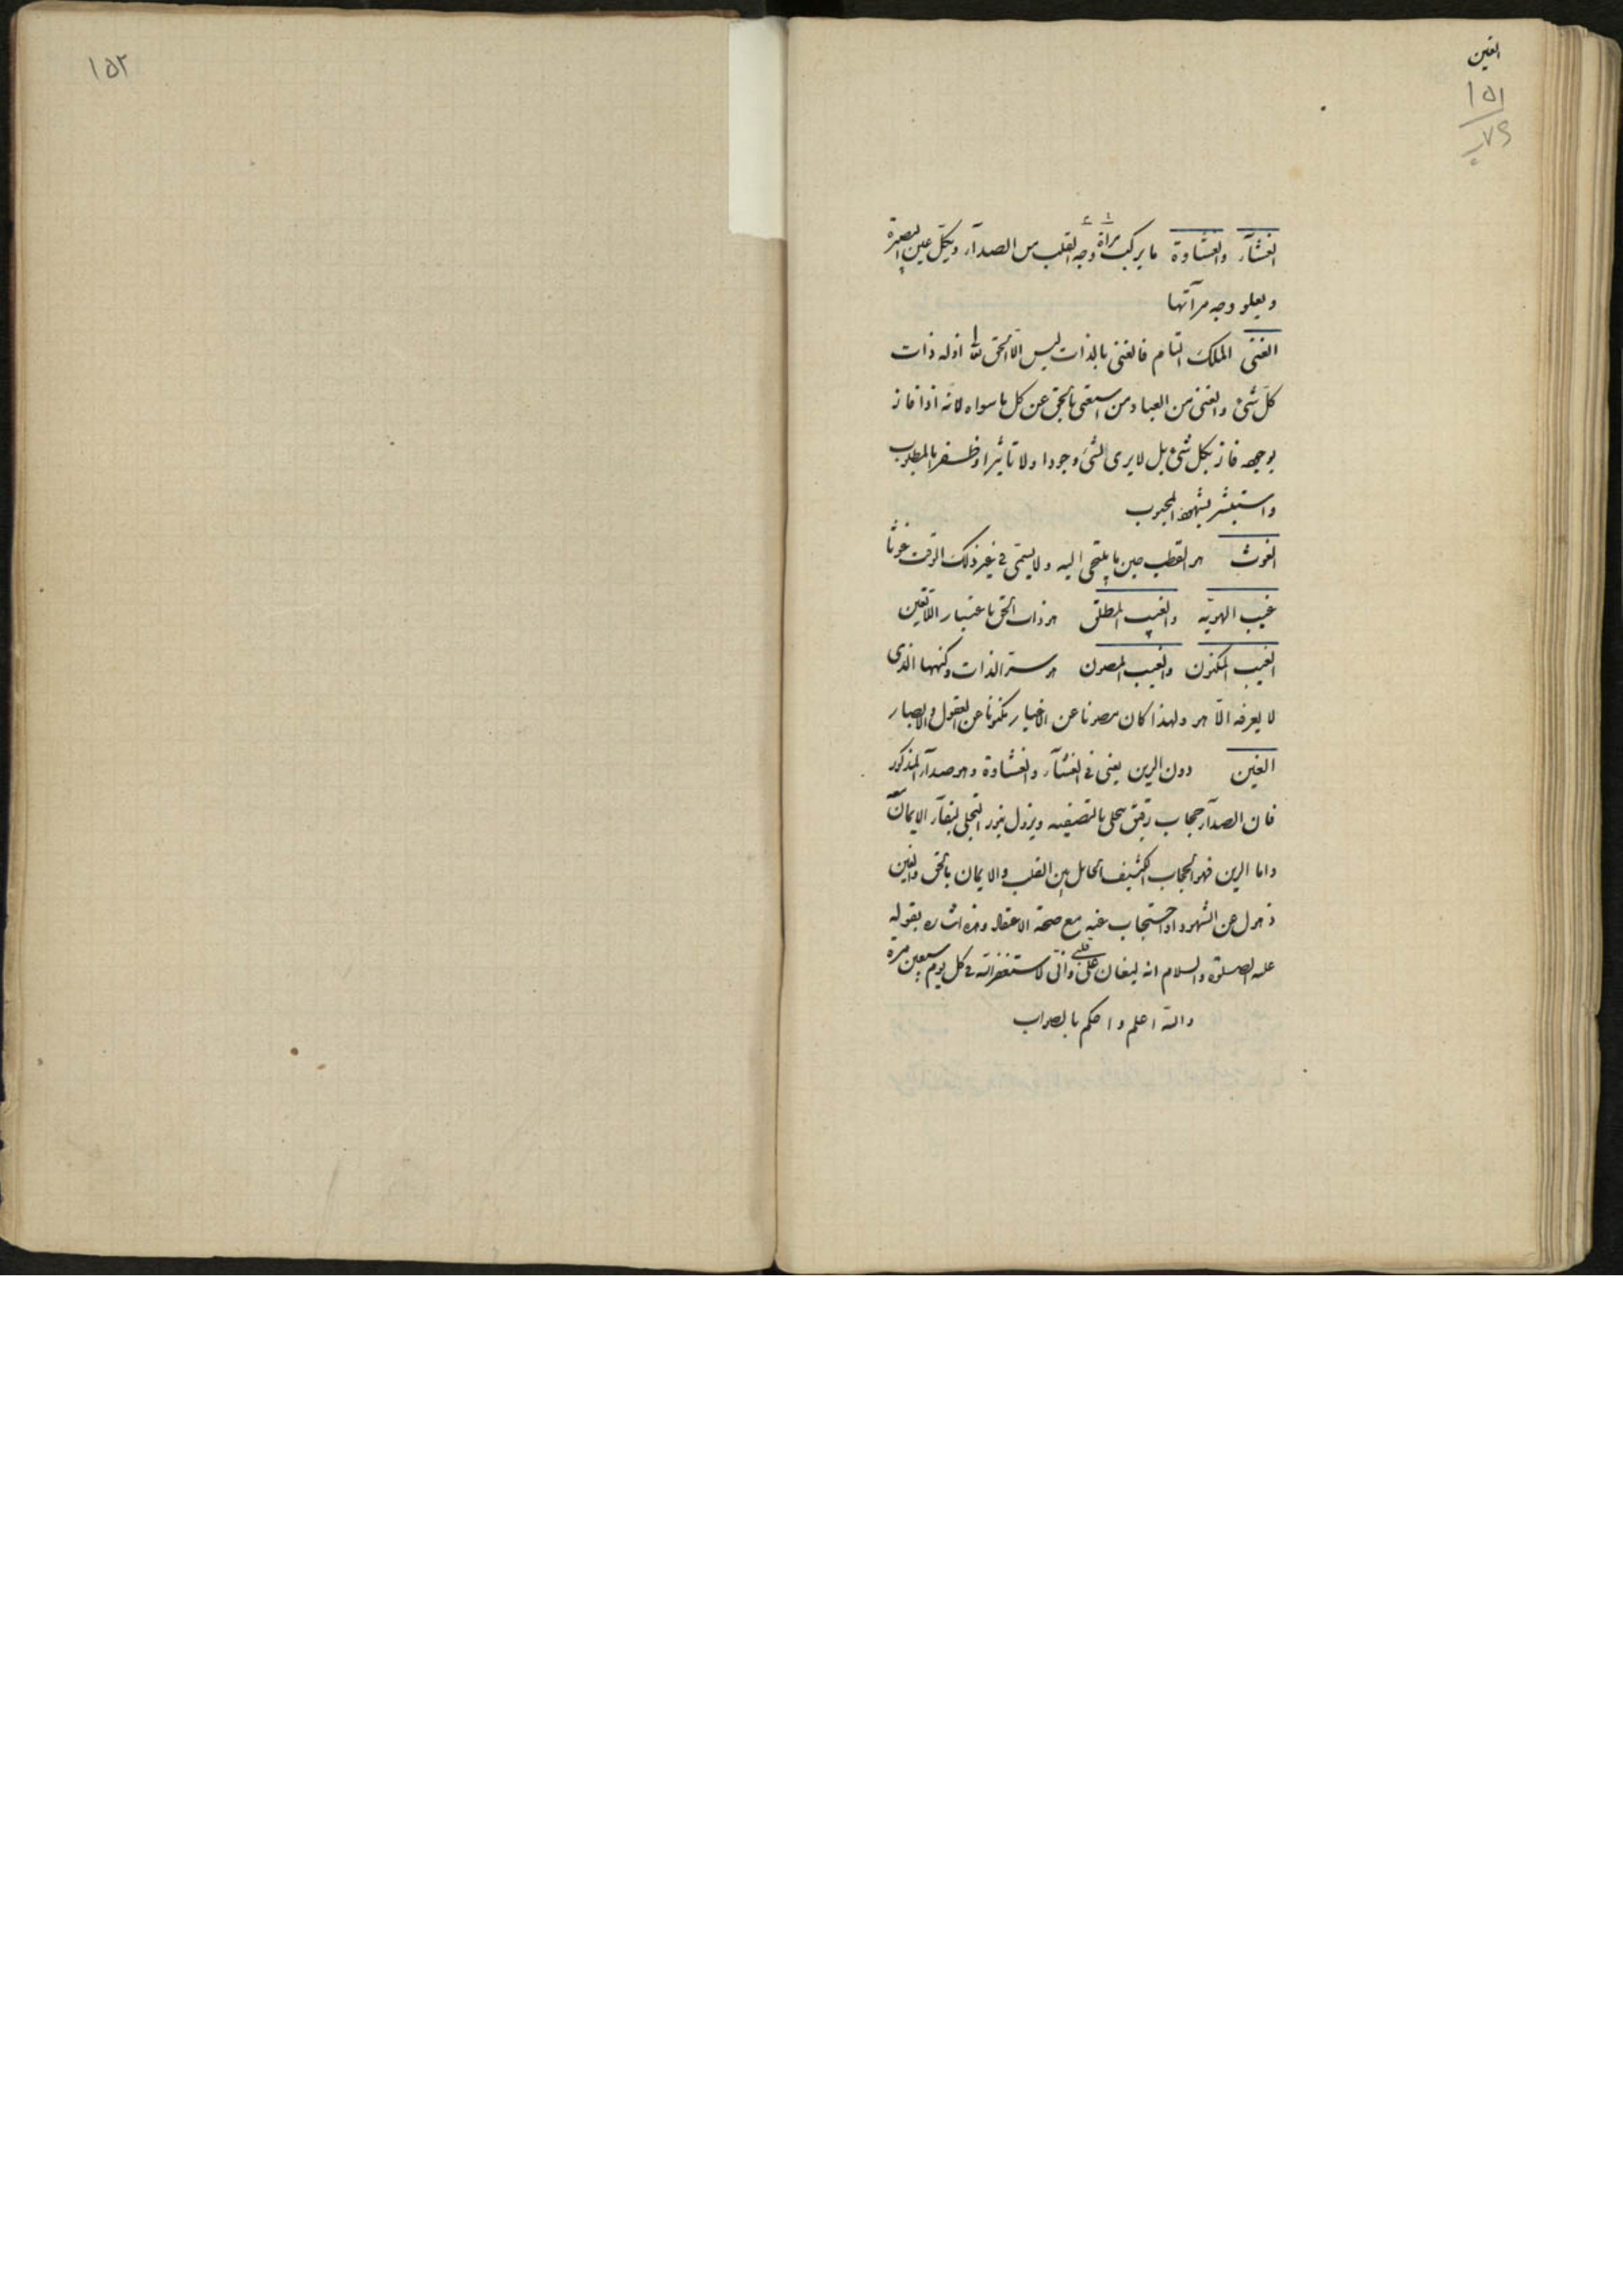 الغين
١٥١
٧٦
الغشآء والغشاوة ما يركب مرآة وجه القلب من الصدآء ويكلّ عين البصيرة
ويعلو وجه مرآتها
الغنى الملك التام فالغنى بالذات ليس الّا الحق تعا اذ له ذات
كلّ شئ والغنى من العباد من استغنى بالحق عن كل ما سواه لانّه اذا فاز
بوجهه فاز بكل شئ بل لا يرى لشئ وجودا ولا تاثيرا وظفر بالمطلوب
واستبشر بشهود المحبوب
الغوث هو القطب حين ما يلتجى اليه ولا يسمّى فى غير ذلك الوقت غوثا
غيب الهويّه والغيب المطلق هو ذات الحق باعتبار اللاتعين
الغيب المكنون والغيب المصون هو سرّ الذات وكنهها الذى
لا يعرفه الّا هو ولهذا كان مصونا عن الاغيار مكنونا عن العقول والابصار
الغين دون الرين يعنى فى الغشآء والغشاوة وهو صدآء المذكور
فان الصدآء حجاب رقيق ينجلى بالتصفيه ويزول بنور التجلى لبقآء الايمان
واما الرين فهو الحجاب الكثيف الحائل بين القلب والايمان بالحق والغين
ذهول عن الشهود او احتجاب عنه مع صحة الاعتقاد وهذه اشاره بقوله
عليه الصلوة والسلام انه ليغان على قلبى وانّى لاستغفر الله فى كل يوم سبعين مرة
والله اعلم واحكم بالصواب
١٥٢